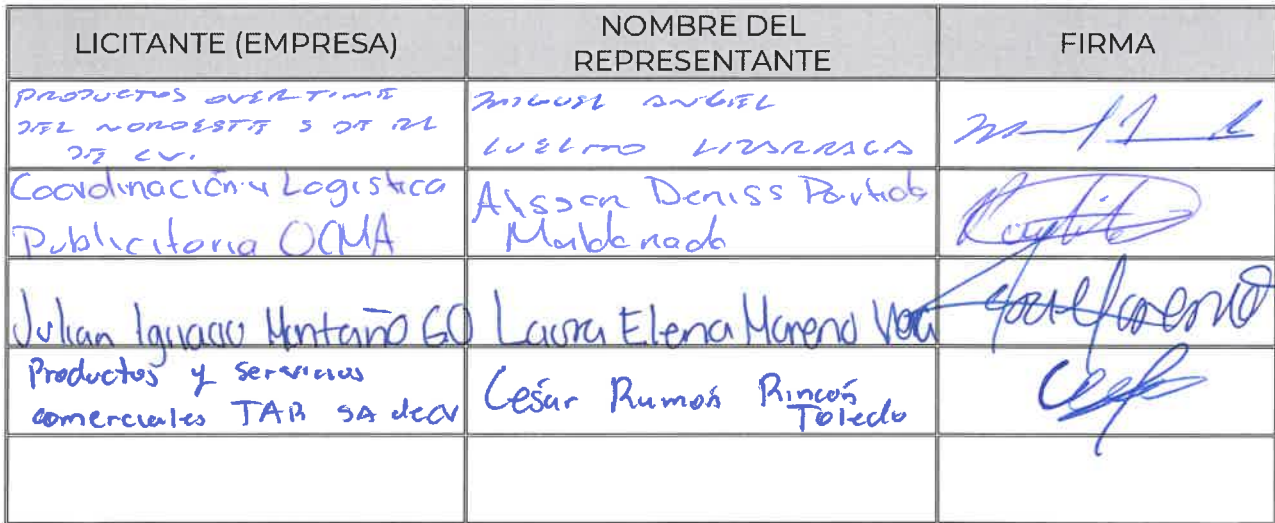 LICITANTE (EMPRESA)
NOMBRE DEL
REPRESENTANTE
FIRMA
PRODUCTOS OVERTIME
DEL NOROESTE S DE RL
DE CV.
MIGUEL ANGEL
LUELMO LIZARRAGA
Coordinación y Logistica
Publicitaria OCMA
Deniss Partida
Maldonado
Julian Ignacio Montaño GO
Laura Elena Moreno
Productos y Servicios
comerciales TAR SA de CV
César Ramón Rincón
Toledo